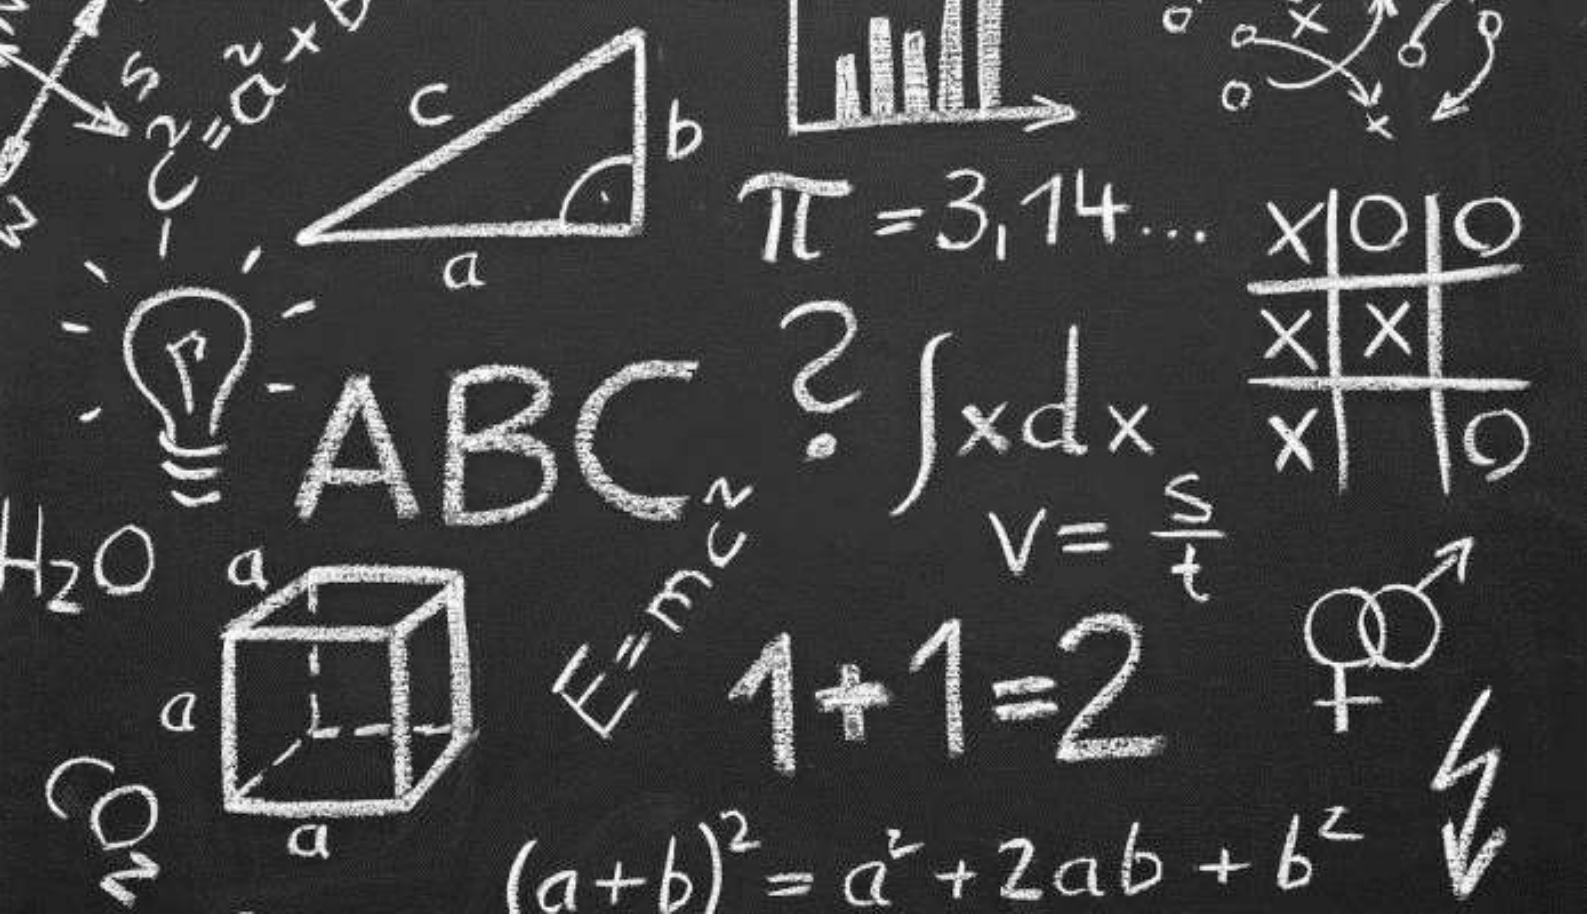 N
S
W
c² = a² × b
c
b
a
π = 3,14...
X O O
X X
X O
?
∫xdx
ABC
v = s/t
H₂O
a
a
a
E=mc²
1+1=2
CO₂
(a+b)² = a² + 2ab + b²